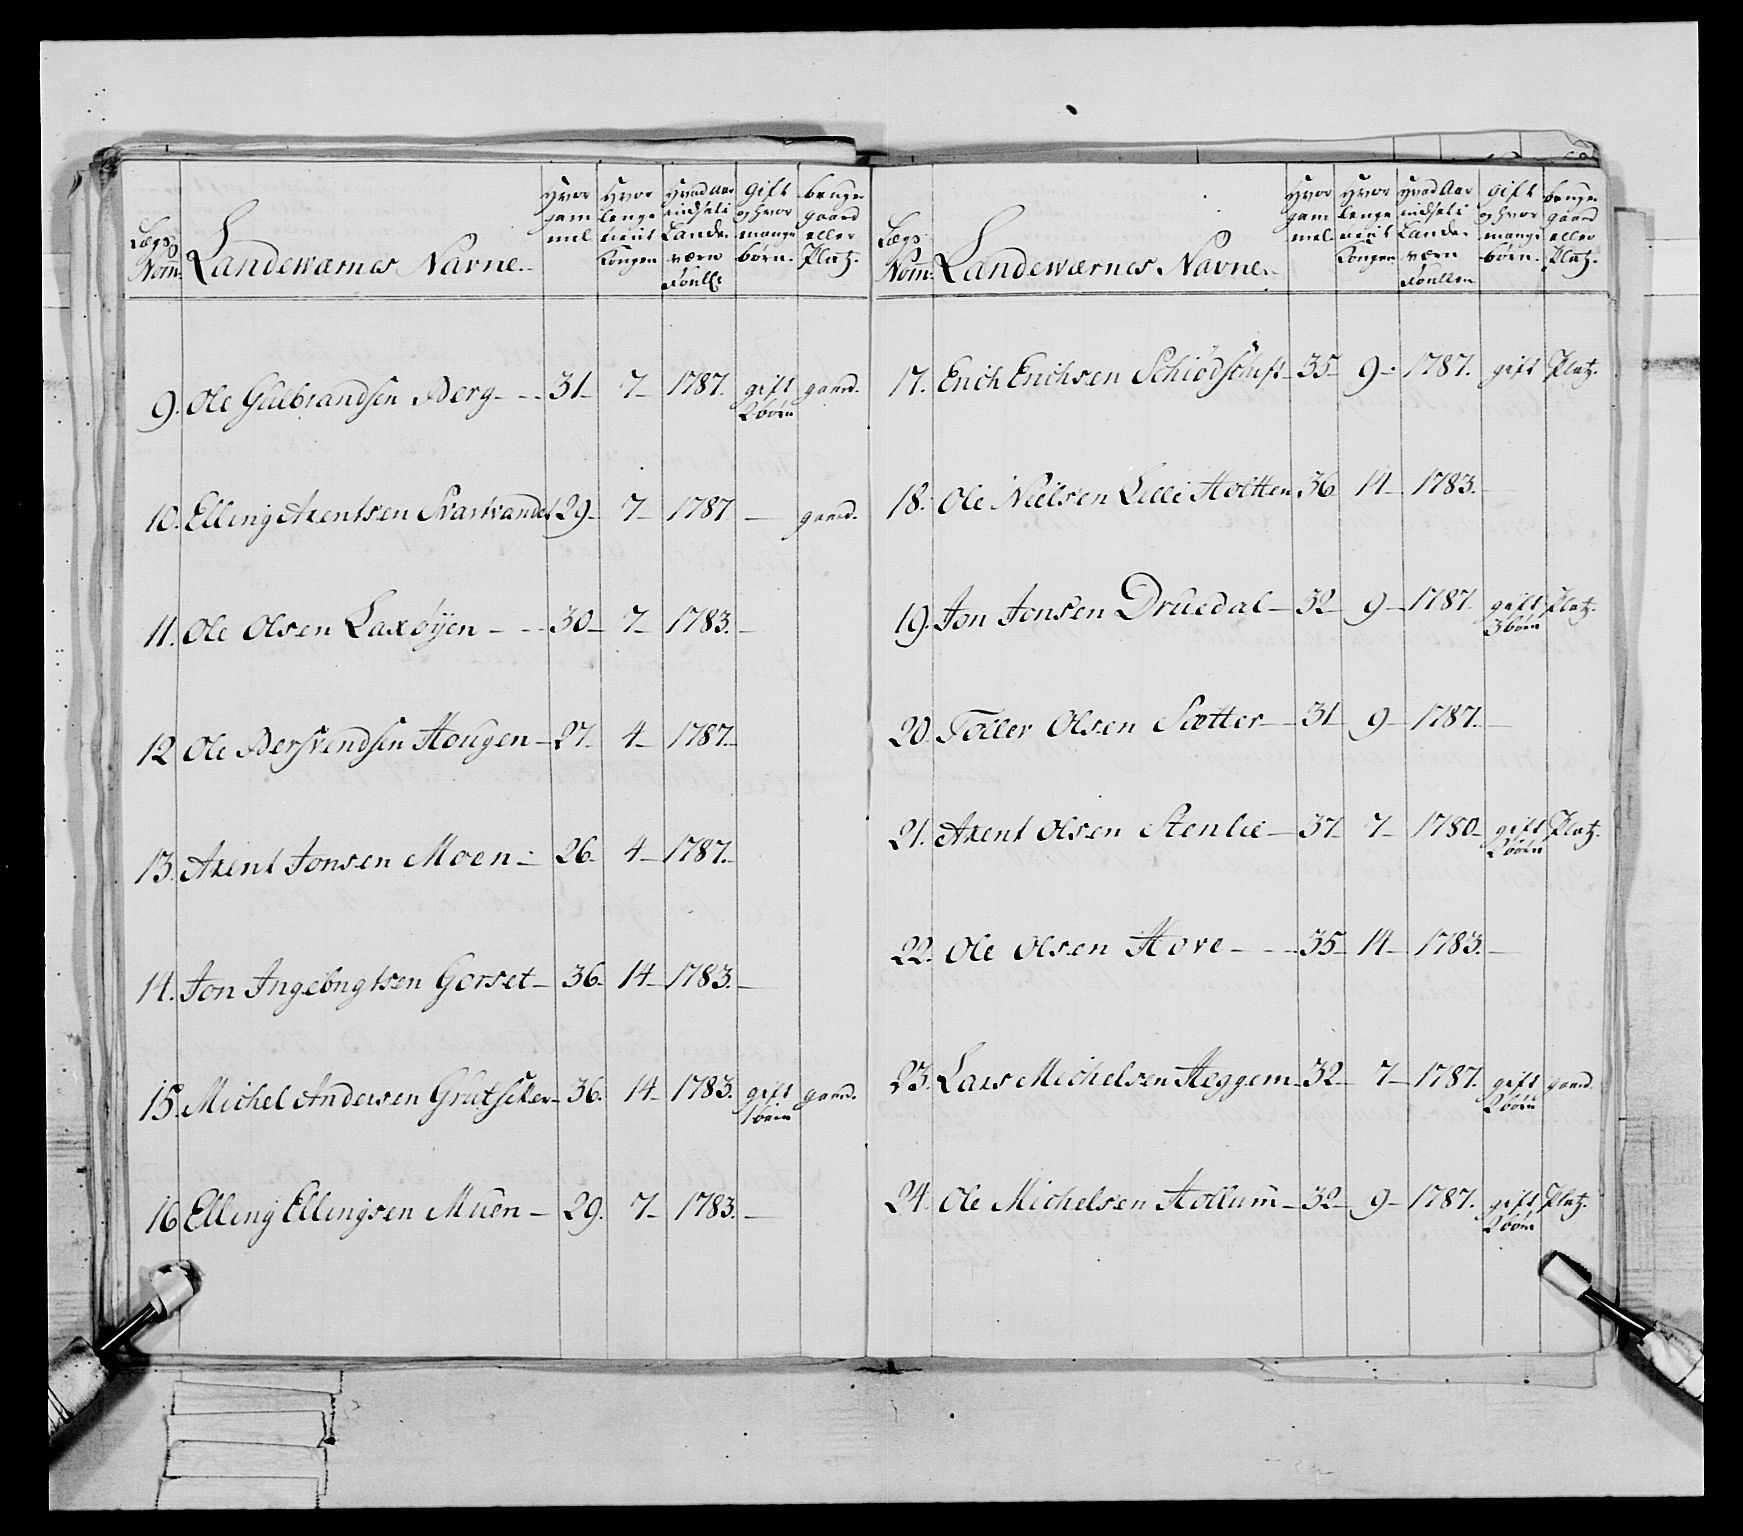 Lægs Nom:	Landeværnes Navne.	Hvor gam mel	Hvor lenge tient Kongen	Hvad Aar indsat i Lande- værn Roull:	gift og hvor mange børn.	bruger gaard eller Platz.
9.	Ole Gulbrandsen Berg	31	7	1787.	gift 2 børn	gaard.
10.	Elling Arentsen Svartvandet	29	7	1787	—	gaard.
11.	Ole Olsen Laxøyen	30	7	1783.	—
12	Ole Bersvendsen Hougen	27.	4	1787.
13.	Arent Jonsen Moen	26.	4	1787.
14.	Jon Ingebrigtsen Gorset	36.	14	1783.	—
15.	Michel Andersen Grutseter	36.	14	1783.	gift 1 børn	gaard.
16	Elling Ellingsen Muen	29.	7	1783.	—
Lægs Nom:	Landeværnes Navne.	Hvor gam mel	Hvor lenge tient Kongen	Hvad Aar indsat i Lande- værn Roullen	gift og hvor mange børn.	bruger gaard eller Platz.
17.	Erich Erichsen	35	9	1787.	gift	Platz.
18.	Ole Nielsen Lille Holtten	36	14	1783.	—
19.	Jon Jonsen Druedal	32	9	1787	gift 3 børn	Platz.
20.	Toller Olsen Sætter	31	9	1787.	—
21.	Arent Olsen Stenlie	37	7	1780	gift 2 børn	Platz.
22.	Ole Olsen Hove	35	14	1783.	—
23.	Lars Michelsen Heggem	32	7	1787.	gift 2 børn	gaard.
24.	Ole Michelsen Hollum	32	9	1787.	gift 2 børn	Platz.